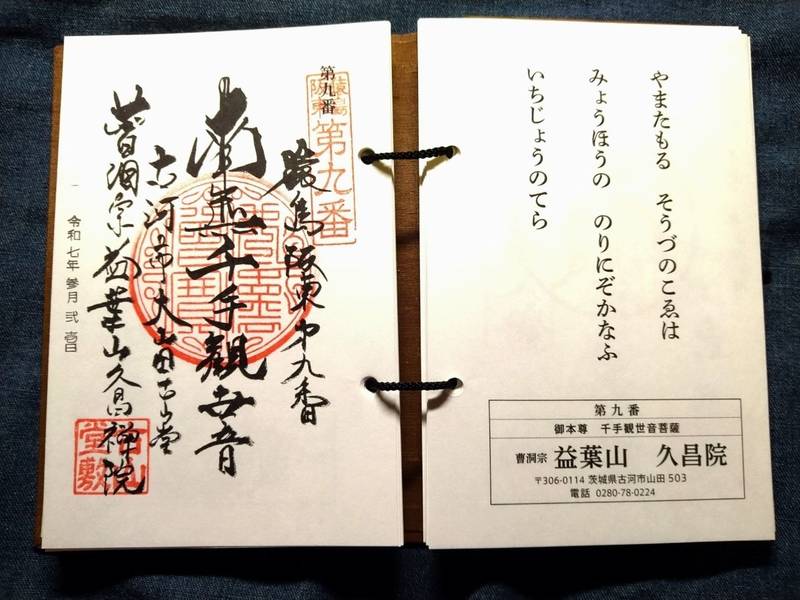 やまたもる そうづのこゑは
みょうほうの のりにぞかなふ
いちじょうのてら
第九番
御本尊 千手観世音菩薩
曹洞宗 益葉山 久昌院
〒306-0114 茨城県古河市山田 503
電話 0280-78-0224
第九番
猿島
阪東
第九番
猿島阪東第九番
南無千手観世音
古河市
曹洞宗益葉山久昌禅院
令和七年 参月 弐壱日